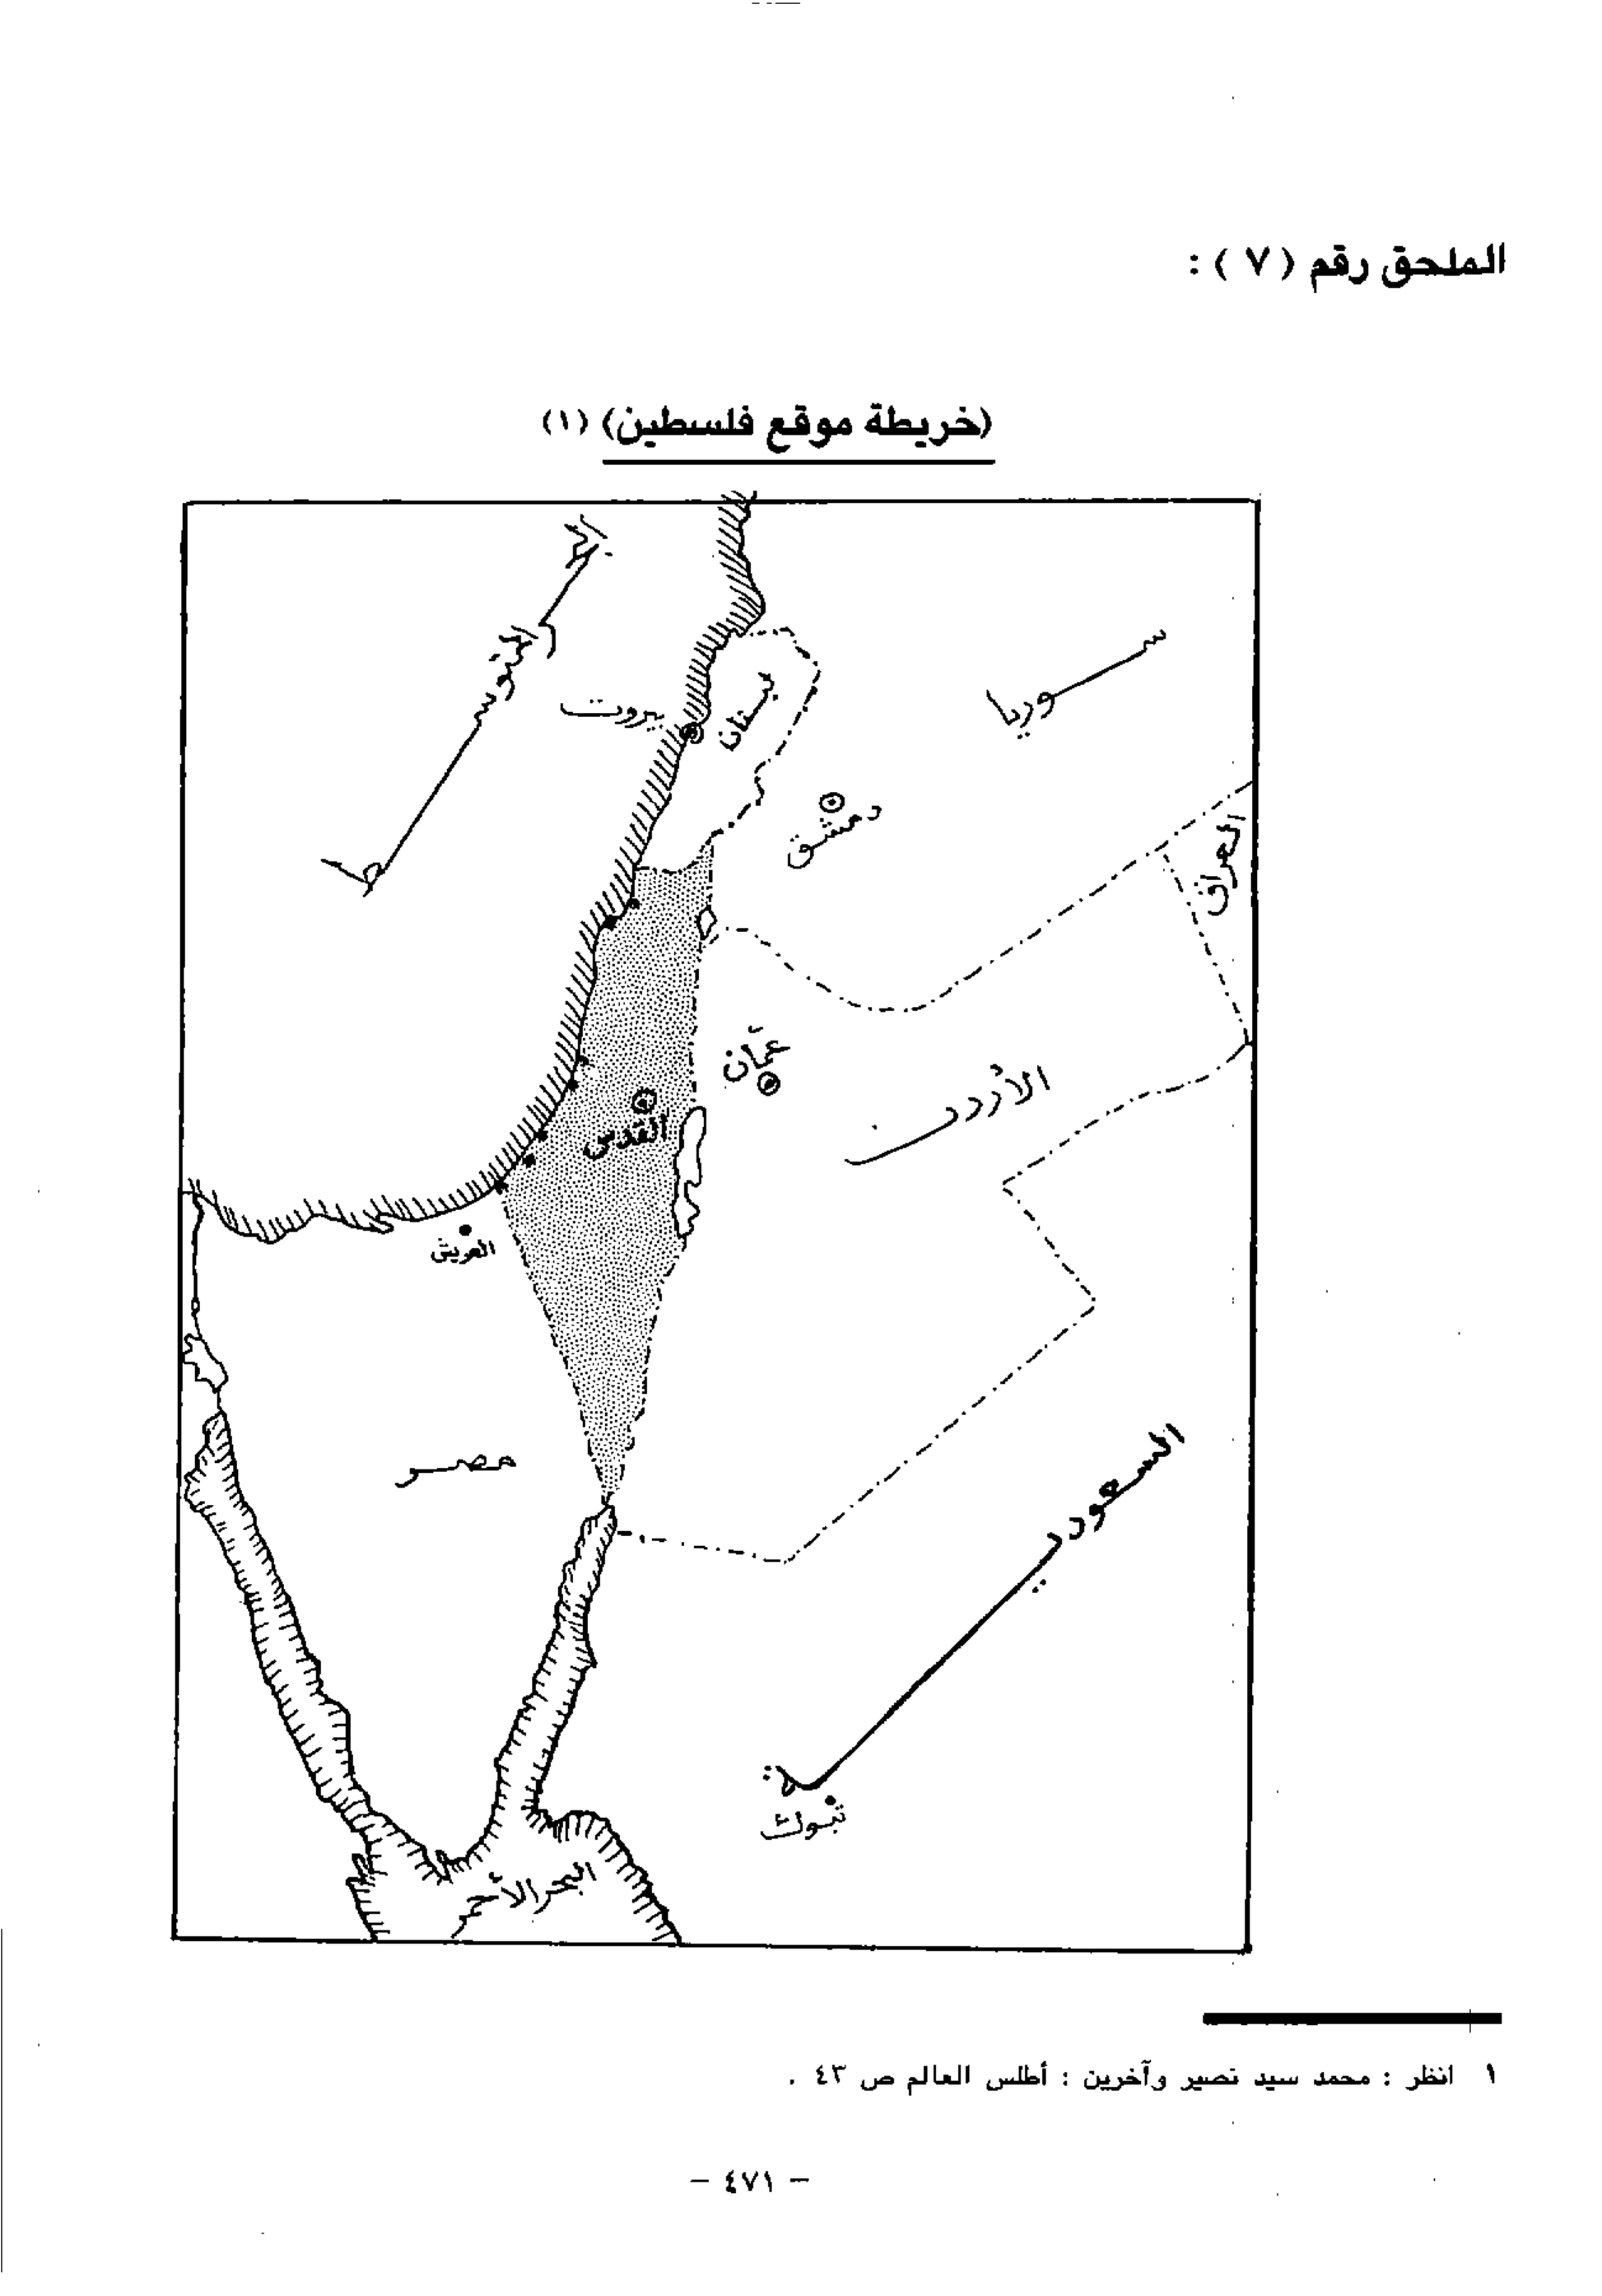 الملحق رقم (٧) :
(خريطة موقع فلسطين) (١)
البحر المتوسط
بيروت
لبنان
سوريا
دمشق
العراق
عمّان
الأردن
القدس
العريش
مصر
السعودية
تبوك
البحر الأحمر
١ انظر : محمد سيد نصير وآخرين : أطلس العالم ص ٤٣ .
– ٤٧١ –